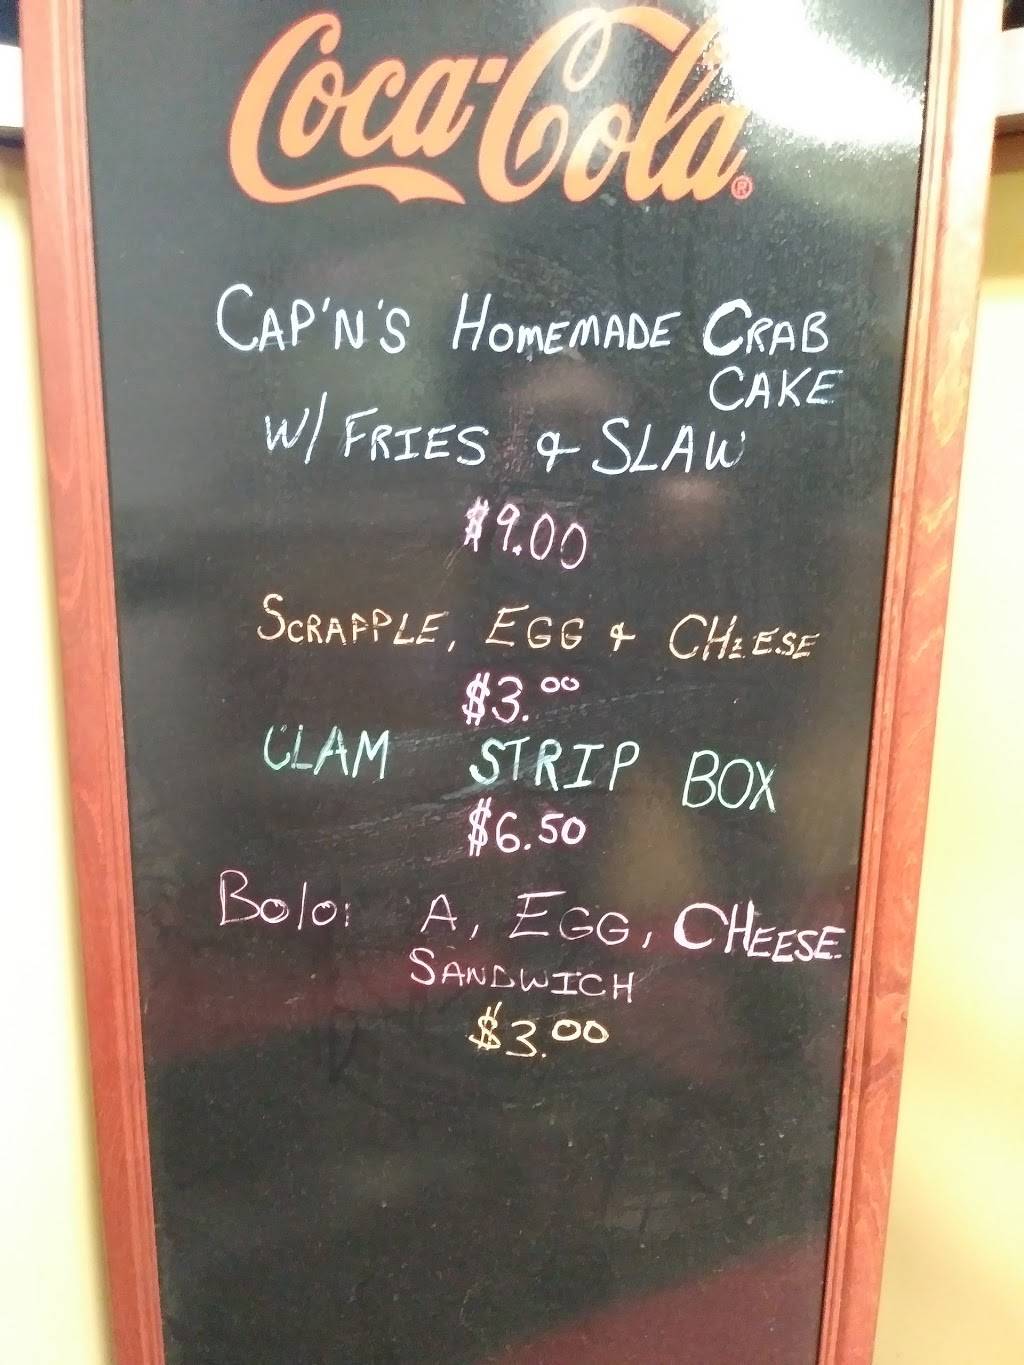 Coca-Cola®
CAP'N'S HOMEMADE CRAB
CAKE
W/ FRIES & SLAW
$9.00
SCRAPPLE, EGG & CHEESE
$3.00
CLAM STRIP BOX
$6.50
Bolo: A, EGG, CHEESE
SANDWICH
$3.00